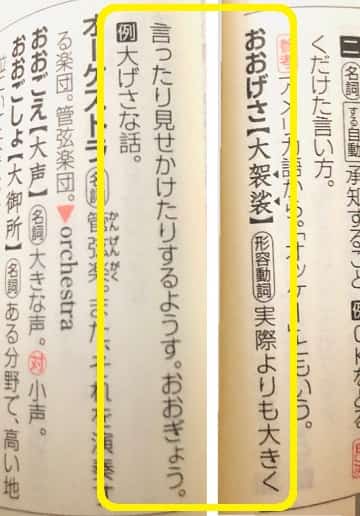 二 名詞 する自動 承知すること 例
くだけた言い方。
参考 アメリカ語から。「オッケー」ともいう。
おおげさ【大袈裟】 形容動詞 実際よりも大きく
言ったり見せかけたりするようす。おおぎょう。
例 大げさな話。
オーケストラ 名詞 管弦楽。また、それを演奏す
る楽団。管弦楽団。▼orchestra
おおごえ【大声】 名詞 大きな声。対 小声。
おおごしょ【大御所】 名詞 ある分野で、高い地